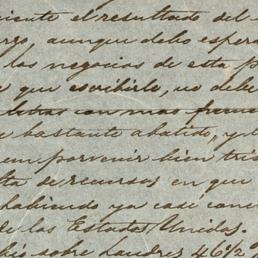 el resultado del
aunque debo esper
los negocios de esta p
que escribirle, no debe
con mas
bastante abatido, y l
porvenir bien tris
ta de recursos en que
habiendo ya casi conc
de los Estados Unidos.
sobre Londres 46½